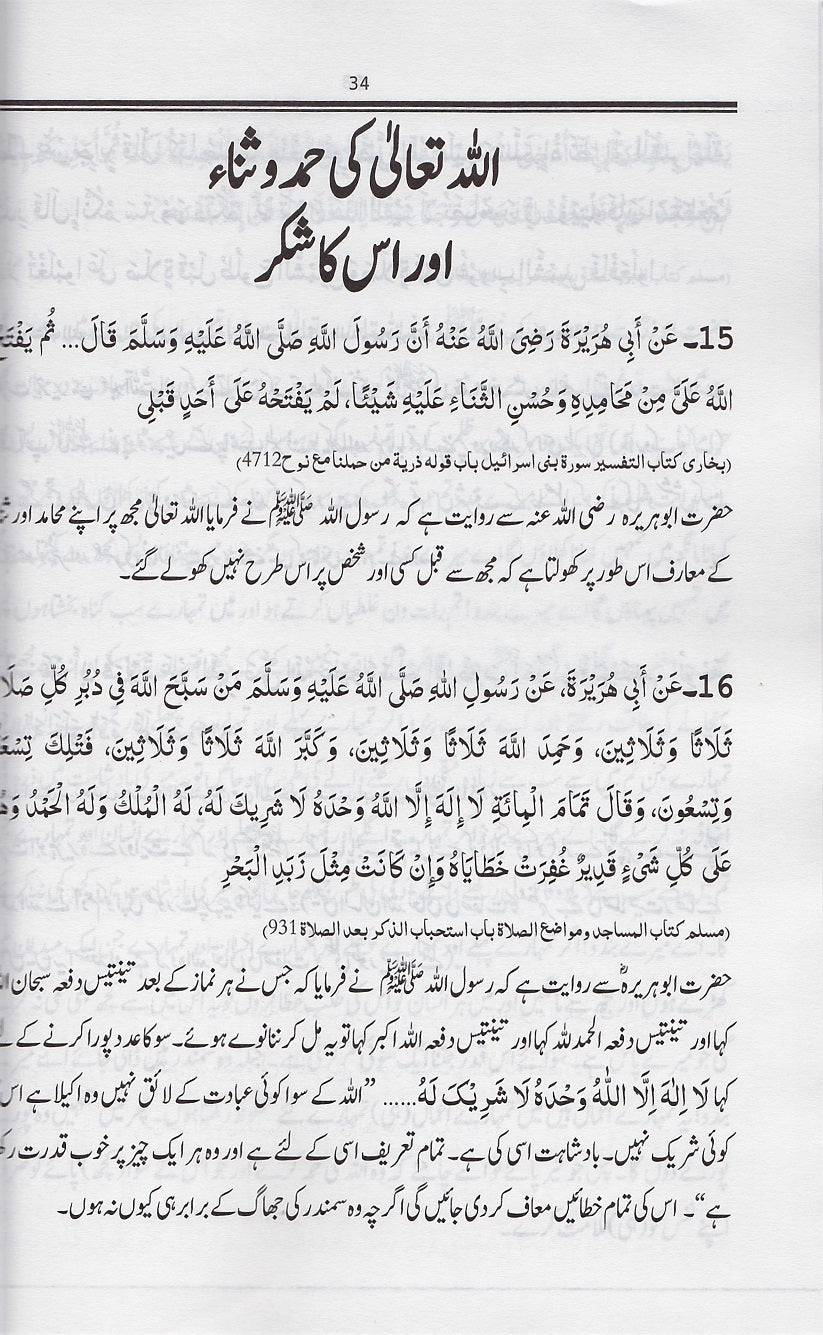 34
اللہ تعالیٰ کی حمد و ثناء
اور اس کا شکر
15۔ عَنْ أَبِي هُرَيْرَةَ رَضِيَ اللَّهُ عَنْهُ أَنَّ رَسُولَ اللَّهِ صَلَّى اللَّهُ عَلَيْهِ وَسَلَّمَ قَالَ... ثُم
اللَّهُ عَلَيَّ مِنْ مَحَامِدِهِ وَحُسْنِ الثَّنَاءِ عَلَيْهِ شَيْئًا، لَمْ يَفْتَحْهُ عَلَى أَحَدٍ قَبْلِي
(بخاری کتاب التفسیر سورۃ بنی اسرائیل باب قولہ ذریۃ من حملنا مع نوح 4712)
حضرت ابوہریرہ رضی اللہ عنہ سے روایت ہے کہ رسول اللہ ﷺ نے فرمایا اللہ تعالیٰ مجھ پر اپنے محامد اور
کے معارف اس طور پر کھولتا ہے کہ مجھ سے قبل کسی اور شخص پر اس طرح نہیں کھولے گئے۔
16۔ عَنْ أَبِي هُرَيْرَةَ، عَنْ رَسُولِ اللهِ صَلَّى اللَّهُ عَلَيْهِ وَسَلَّمَ مَنْ سَبَّحَ اللَّهَ فِي دُبُرِ كُلِّ
ثَلَاثًا وَثَلَاثِينَ، وَحَمِدَ اللَّهَ ثَلَاثًا وَثَلَاثِينَ، وَكَبَّرَ اللَّهَ ثَلَاثًا وَثَلَاثِينَ، فَتْلِكَ
وَتِسْعُونَ، وَقَالَ تَمَامَ الْمِائَةِ لَا إِلَهَ إِلَّا اللَّهُ وَحْدَهُ لَا شَرِيكَ لَهُ، لَهُ الْمُلْكُ وَلَهُ الْحَمْدُ
عَلَى كُلِّ شَيْءٍ قَدِيرٌ غُفِرَتْ خَطَايَاهُ وَإِنْ كَانَتْ مِثْلَ زَبَدِ الْبَحْرِ
(مسلم کتاب المساجد ومواضع الصلاۃ باب استحباب الذکر بعد الصلاۃ 931)
حضرت ابوہریرہؓ سے روایت ہے کہ رسول اللہ ﷺ نے فرمایا کہ جس نے ہر نماز کے بعد تینتیس دفعہ سبحان
کہا اور تینتیس دفعہ الحمد للہ کہا اور تینتیس دفعہ اللہ اکبر کہا تو یہ مل کر ننانوے ہوئے۔ سو کا عدد پورا کرنے کے
کہا لَا اِلٰهَ اِلَّا اللّٰهُ وَحْدَهُ لَا شَرِيْكَ لَهُ...... ”اللہ کے سوا کوئی عبادت کے لائق نہیں وہ اکیلا ہے اس
کوئی شریک نہیں۔ بادشاہت اسی کی ہے۔ تمام تعریف اسی کے لئے ہے اور وہ ہر ایک چیز پر خوب قدرت
ہے“۔ اس کی تمام خطائیں معاف کر دی جائیں گی اگرچہ وہ سمندر کی جھاگ کے برابر ہی کیوں نہ ہوں۔